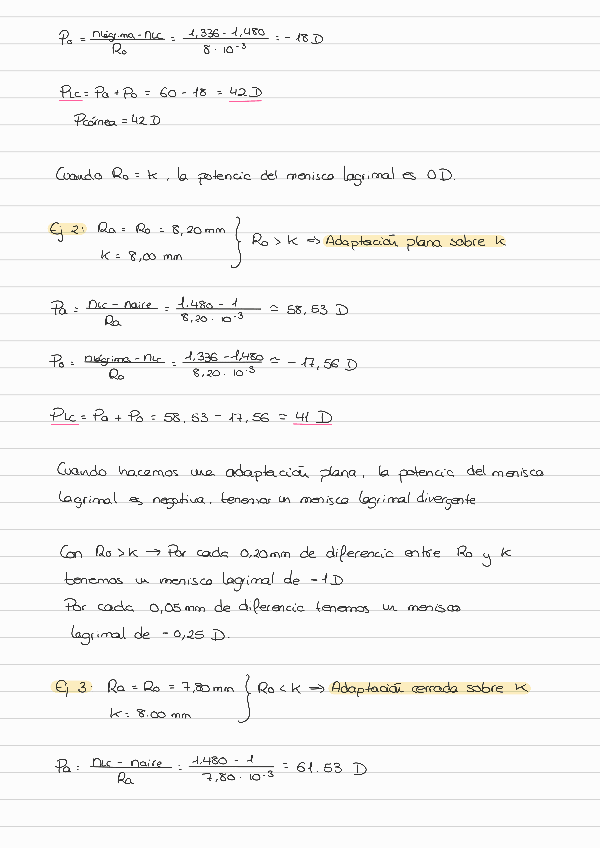 P₀ = nlágrima - nLC / R₀ = 1,336 - 1,480 / 8 · 10⁻³ = - 18 D
PLC = Pa + P₀ = 60 - 18 = 42 D
Pcórnea = 42 D
Cuando R₀ = K, la potencia del menisco lagrimal es 0D.
Ej 2: Ra = R₀ = 8,20 mm } R₀ > K ⇒ Adaptación plana sobre K
K = 8,00 mm
Pa = nLC - naire / Ra = 1.480 - 1 / 8,20 · 10⁻³ ≃ 58,53 D
P₀ = nlágrima - nLC / R₀ = 1,336 - 1,480 / 8,20 · 10⁻³ ≃ - 17,56 D
PLC = Pa + P₀ = 58,53 - 17,56 = 41 D
Cuando hacemos una adaptación plana, la potencia del menisco
lagrimal es negativa, tenemos un menisco lagrimal divergente
Con R₀ > K → Por cada 0,20mm de diferencia entre R₀ y K
tenemos un menisco lagrimal de -1D
Por cada 0,05 mm de diferencia tenemos un menisco
lagrimal de - 0,25 D.
Ej 3: Ra = R₀ = 7,80 mm } R₀ < K ⇒ Adaptación cerrada sobre K
K = 8.00 mm
Pa = nLC - naire / Ra = 1.480 - 1 / 7,80 · 10⁻³ = 61.53 D